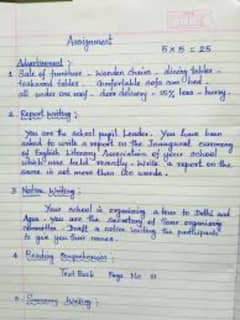 Assignment
5 x 5 = 25
Advertisement :
1 Sale of furniture - Wooden chairs - dining tables -
teakwood tables - Comfortable sofa cum bed -
all under one roof - door delivery - 15% less - hurry.
2. Report Writing :
You are the school pupil Leader. You have been
asked to write a report on the Inaugural ceremony
of English Literary Association of your school
which was held recently. Write a report on the
same in not more than 100 words.
3 Notice Writing :
Your school is organising a tour to Delhi and
Agra. you are the secretary of Tour organising
committee. Draft a notice inviting the participants
to give their names.
4 Reading Comprehension :
Text Book Page No
5. Summary Writing :